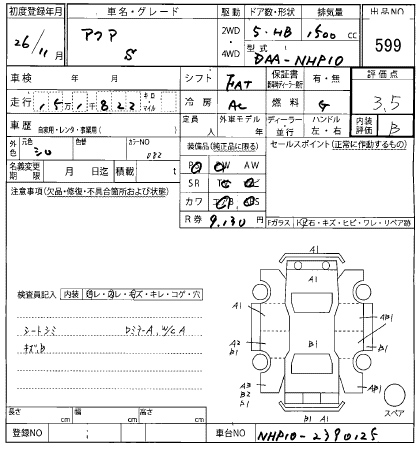 初度登録年月 車名・グレード 駆動 ドア数・形状 排気量 出品NO
26/11月 アクア S 2WD・4WD 5・HB 1,500 cc 599
型式 DAA-NHP10
車検 年 月 シフト FAT 保証書 有・無 評価点
走行 15万1千822 キロ・マイル 冷房 AC 燃料 G 3.5
車歴 自家用・レンタ・事業用( ) 定員 人 外車モデル 年 ディーラー 並行 ハンドル 左・右 内装評価 B
外色 元色 シロ 色替 カラーNO 082 装備品(純正品に限る) セールスポイント(正常に作動するもの)
名義変更期限 月 日迄 積載 t AW
注意事項(欠品・修復・不具合箇所および状態) SR
カワ
R券 9,130 円 Fガラス 石・キズ・ヒビ・ワレ・リペア跡
検査員記入 内装 レ・キレ・コゲ・穴
シートシミ
キズ.B
A1
A1
A1
A1
A2
B1
B1
A3
B2
S1
AB1
A1
B1
AB1
B1 A1
スペア
長さ cm 幅 cm 高さ cm
登録NO 車台NO NHP10-2390125